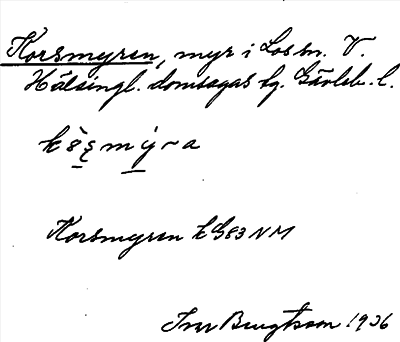 Korsmyren, myr i Los sn. V.
Hälsingl. domsagas tg. Gävleb. l.
Korsmyren k G83 NM
Ivar Bengtsson 1936